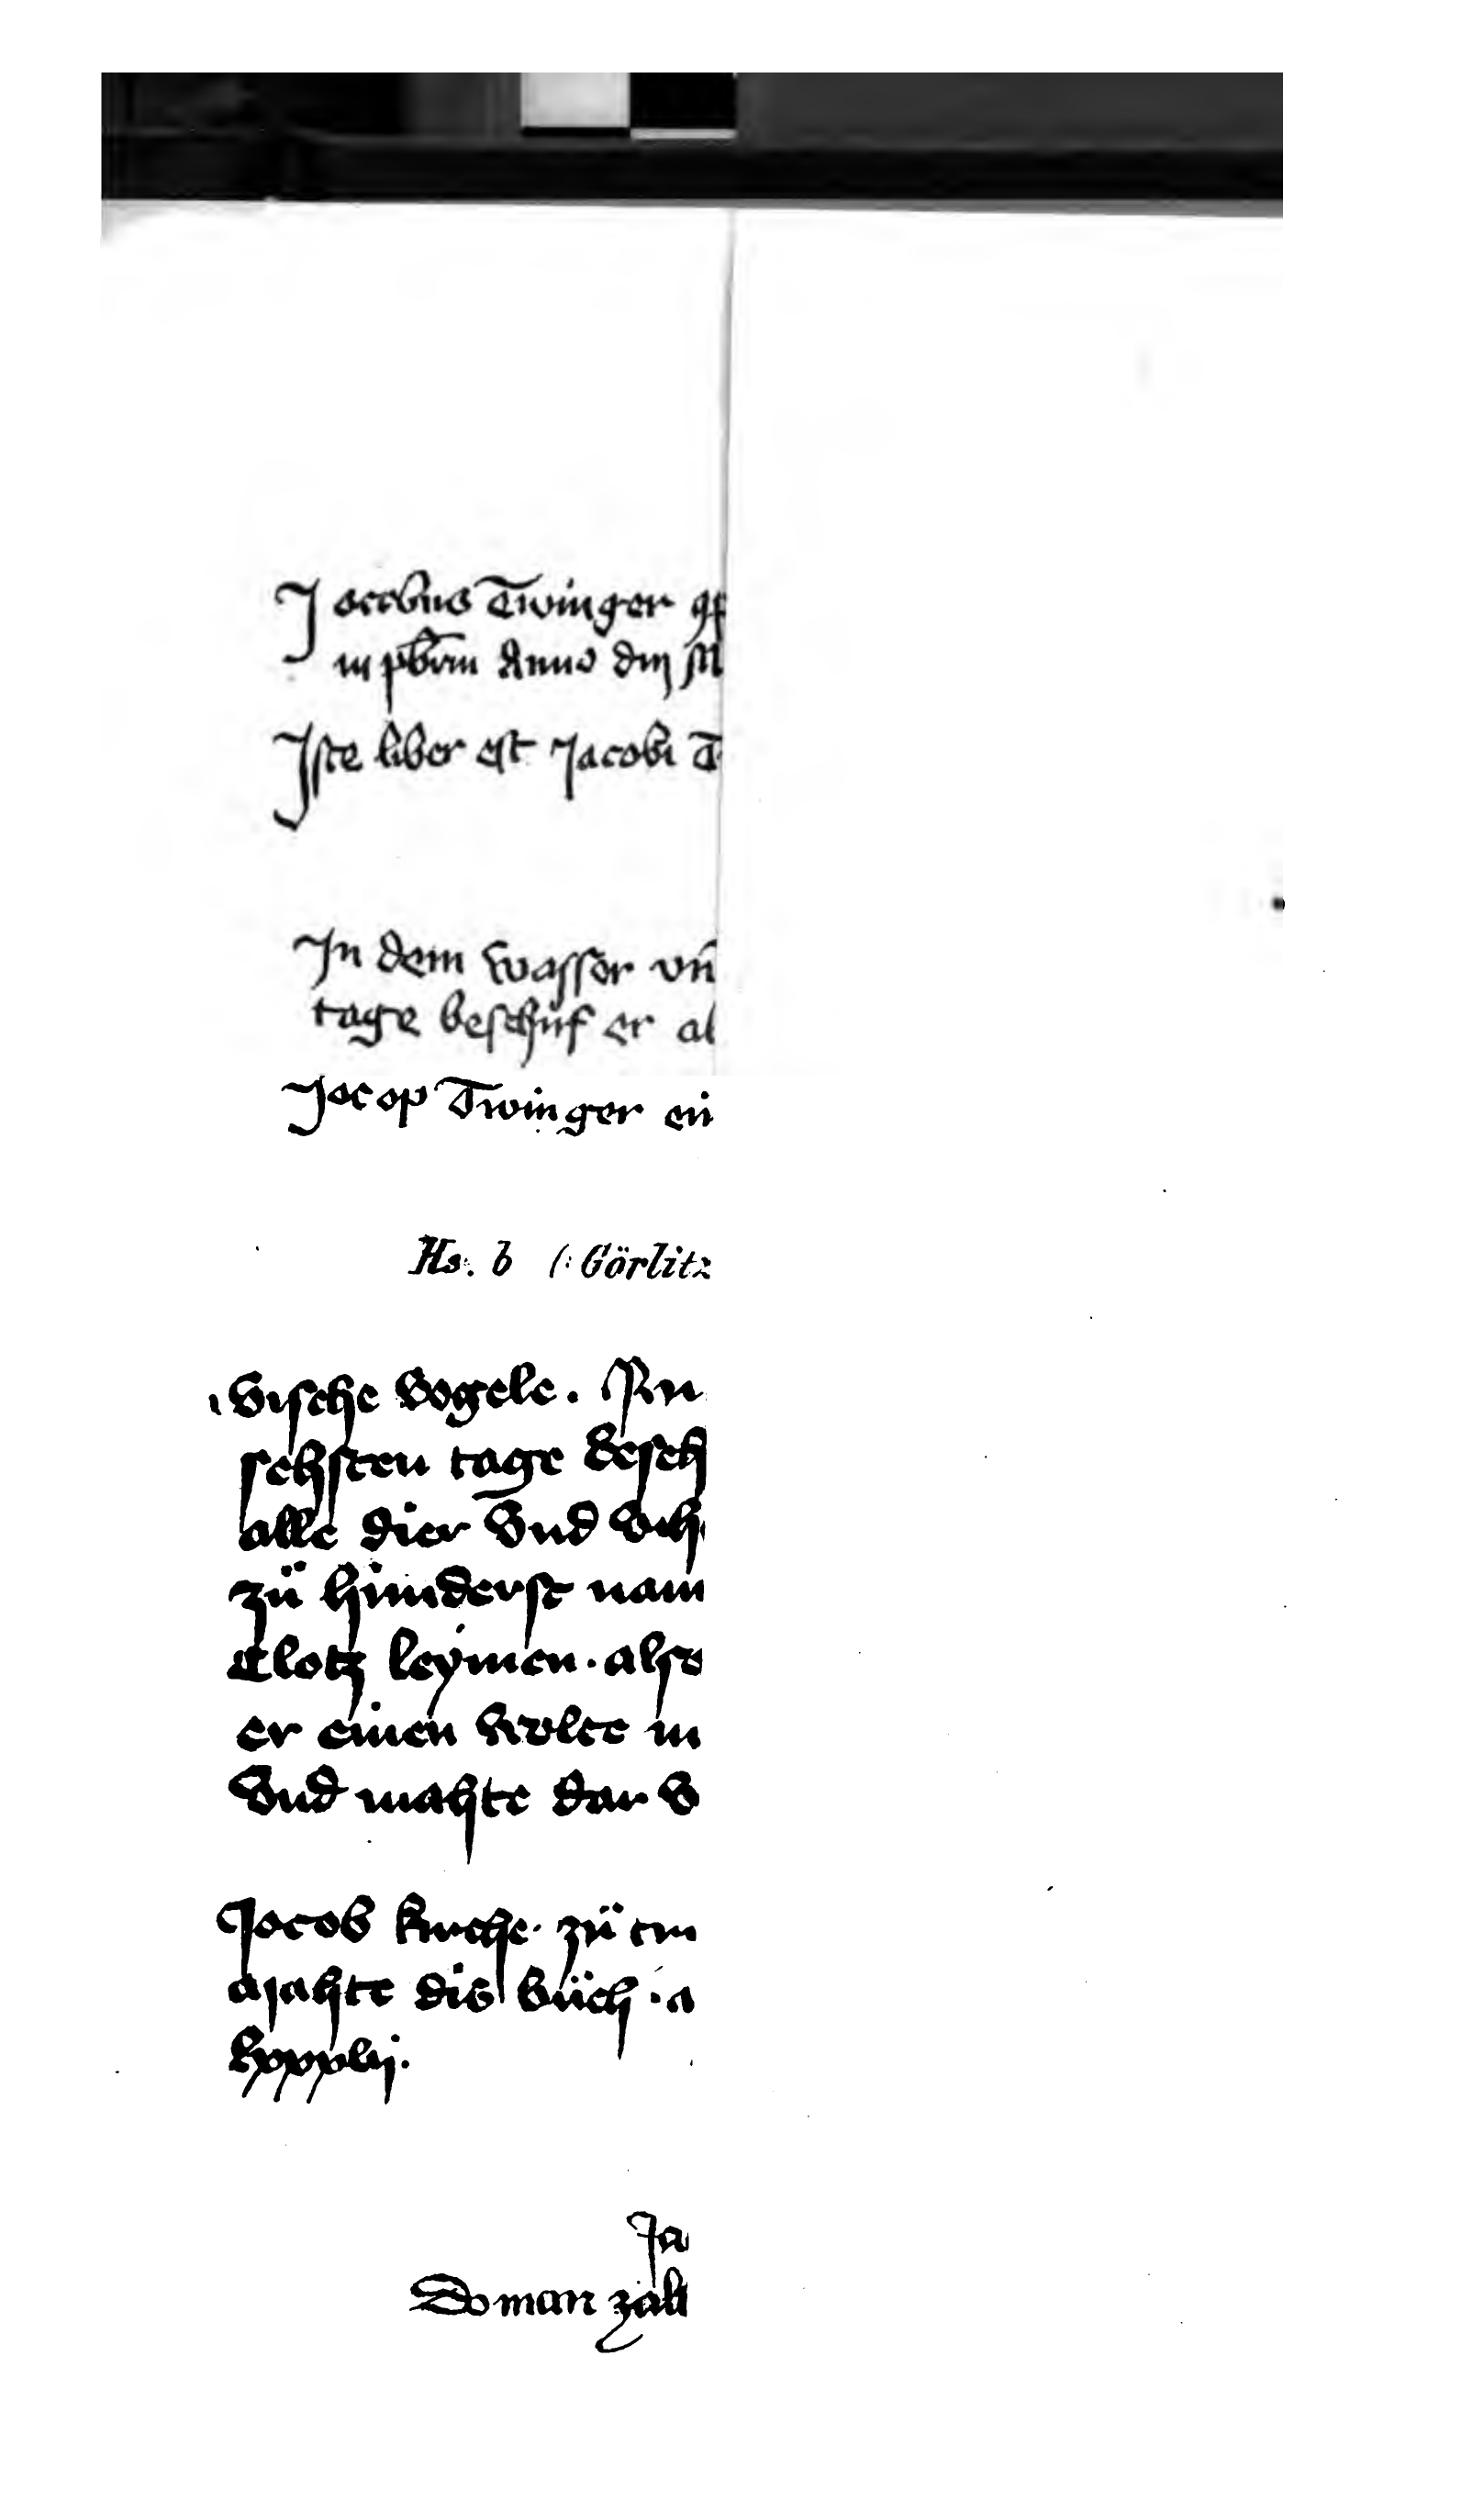 Jacobus Twinger
in pbrm Anno dnj M
Iste liber est Jacobi T
In dem wasser vn̄
tage beschuf er al
Jacop Twinger ein
Hs. b (: Görlitz
vische vogele. An
sehsten tage besch
alle dier vnd vih
zü hinderst nam
Clotz leymen. also
er einen wolte m
vnd mahte dar v
Jacob zü
dis büch. a
Ja
Do man zalt